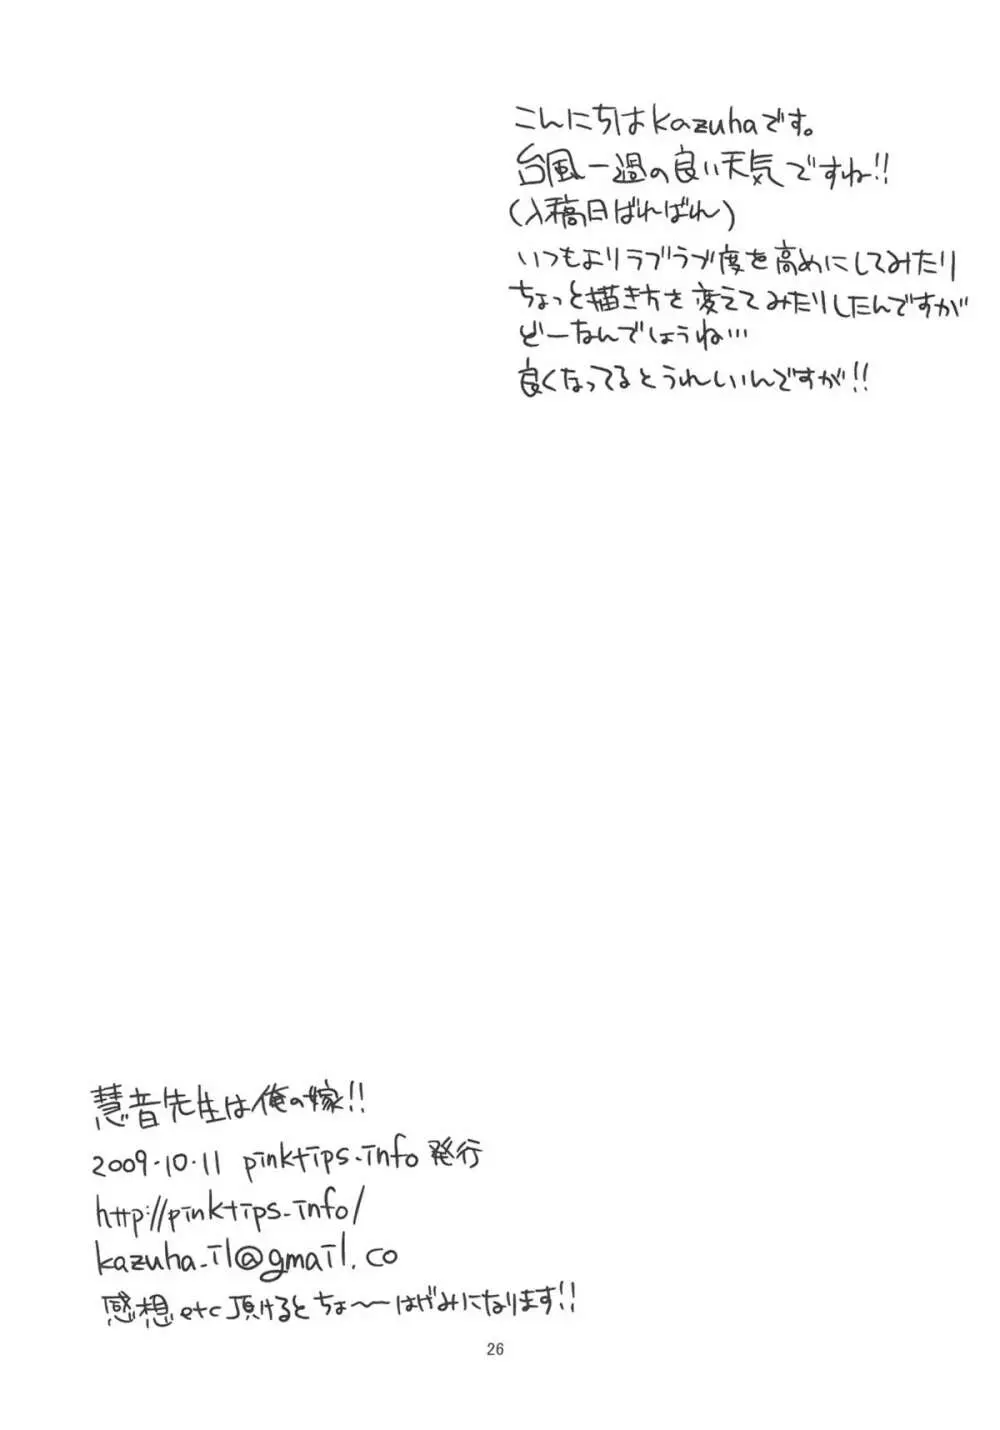 こんにちはkazuhaです。
台風一過の良い天気ですね!!
(入稿日ばればれ)
いつもよりラブラブ度を高めにしてみたり
ちょっと描き方を変えてみたりしたんですが
どーなんでしょうね…
良くなってるとうれしいんですが!!
慧音先生は俺の嫁!!
2009.10.11 pinktips-info発行
http://pinktips-info/
kazuha_il@gmail.co
感想etc頂けるとちょ〜〜はげみになります!!
26